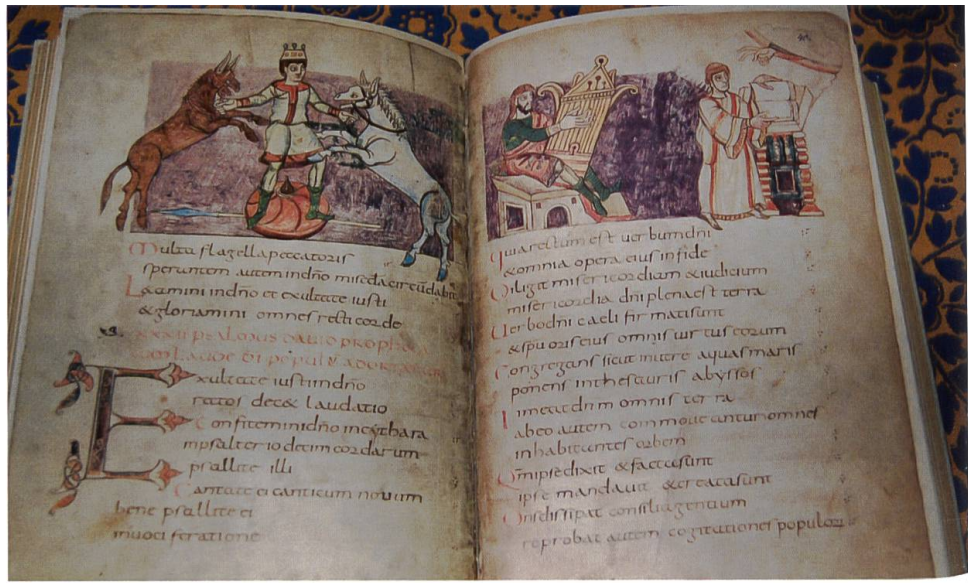 Multa flagella peccatoris
sperantem autem in dño misericdia circūdabit
Laetamini in dño et exultate iusti
& gloriamini omnes recti corde
XXXII PSALMUS DAVID PROPHETA
Exultate iusti in dño
rectos dec& laudatio
Confitemini dño in cythara
in psalterio decim cordarum
psallite illi
Cantate ei canticum novum
bene psallite ei
in vociferatione
Quia rectum est verbum dni
& omnia opera eius in fide
Diligit misericordiam & iudicium
misericordia dni plena est terra
Verbo dni caeli firmati sunt
& spu oris eius omnis virtus eorum
Congregans sicut in utre aquas maris
ponens in thesauris abyssos
Timeat dnm omnis terra
ab eo autem commoveantur omnes
inhabitantes orbem
Qm ipse dixit & facta sunt
ipse mandavit & creata sunt
Dns dissipat consilia gentium
reprobat autem cogitationes populorum